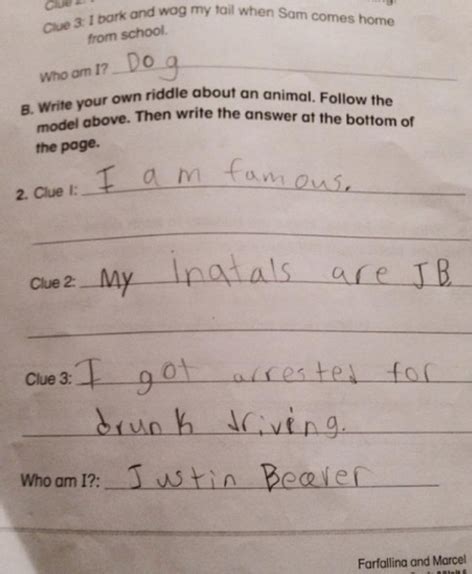 Clue 3: I bark and wag my tail when Sam comes home
from school.
Who am I? Dog
B. Write your own riddle about an animal. Follow the
model above. Then write the answer at the bottom of
the page.
2. Clue 1: I am famous.
Clue 2: My inatals are JB.
Clue 3: I got arrested for
drunk driving.
Who am I?: Justin Beaver
Farfallina and Marcel